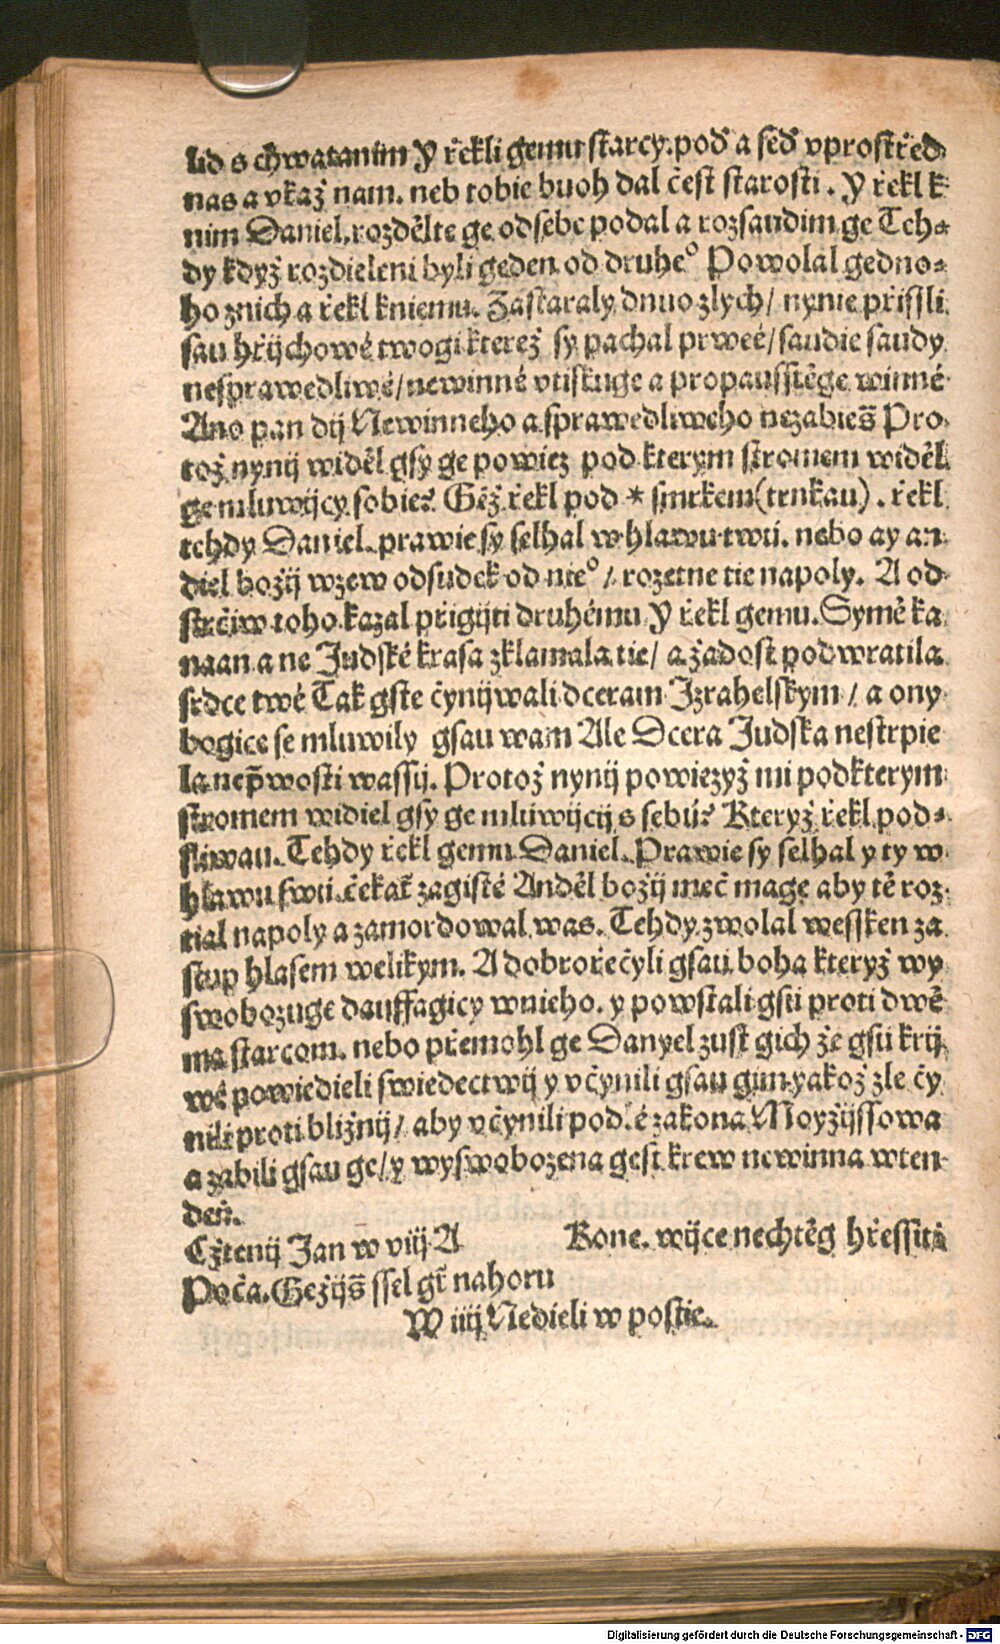 lid s chwatanim Y řekli gemu starcy. pod̕ a sed̕ vprostřed
nas a vkaż nam. neb tobie buoh dal čest starosti. Y řekl k
nim Daniel. rozdělte ge od sebe podal a rozsaudim ge Teh⸗
dy kdyż rozdieleni byli geden od druhe° Powolal gedno⸗
ho znich a řekl kniemu. Zastaraly dnuo zlych / nynie přissli
sau hřijchowé twogi kterež sy pachal prweé / saudie saudy
nesprawedliwé / newinné vtiskuge a propausstěge winné
Ano pan dij Newinneho a sprawedliweho nezabies̄ Pro
toż nynij widěl gsy ge powiez pod kterym stromem widěl
ge mluwijcy sobie? Gēż řekl pod * smrkem (trnkau). řekl
tehdy Daniel. prawie sy selhal w hlawu twú. nebo ay an
diel božij wzew odsudek od nie° / rozetne tie napoly. A od
strčiw toho kazal přigijti druhému Y řekl gemu. Symě ka
naan a ne Judské krasa zklamala tie / a żadost podwratila
srdce twé Tak gste čynijwali dceram Izrahelskym / a ony
bogice se mluwily gsau wam Ale Dcera Judska nestrpie
la nep̄wosti wassij. Protoż nynij powiezyż mi podkterym
stromem widiel gsy ge mluwijcij s sebú? Kteryż řekl pod⸗
sliwau. Tehdy řekl gemu Daniel. Prawie sy selhal y ty w
hlawu swú. čekat̄ zagisté Anděl bożij meč mage aby tě roz
tial napoly a zamordowal was. Tehdy zwolal wessken za
stup hlasem welikym. A dobrořečyli gsau boha kteryż wy
swobozuge dauffagicy wnieho. y powstali gsú proti dwě
ma starcom. nebo přemohl ge Danyel zust gich że gsú krij
wé powiedieli swiedectwij y včynili gsau gim yakoż zle čy
nili proti bliżnij / aby včynili pod.é zakona Moyżijssowa
a zabili gsau ge / y wyswobozena gest krew newinna wten
deň.
Cżtenij Jan w viij A Kone. wijce nechtěg hřessiti
Poča. Geżijs̄ ssel gt̄ nahoru
W iiij Nedieli w postie.
Digitalisierung gefördert durch die Deutsche Forschungsgemeinschaft - DFG